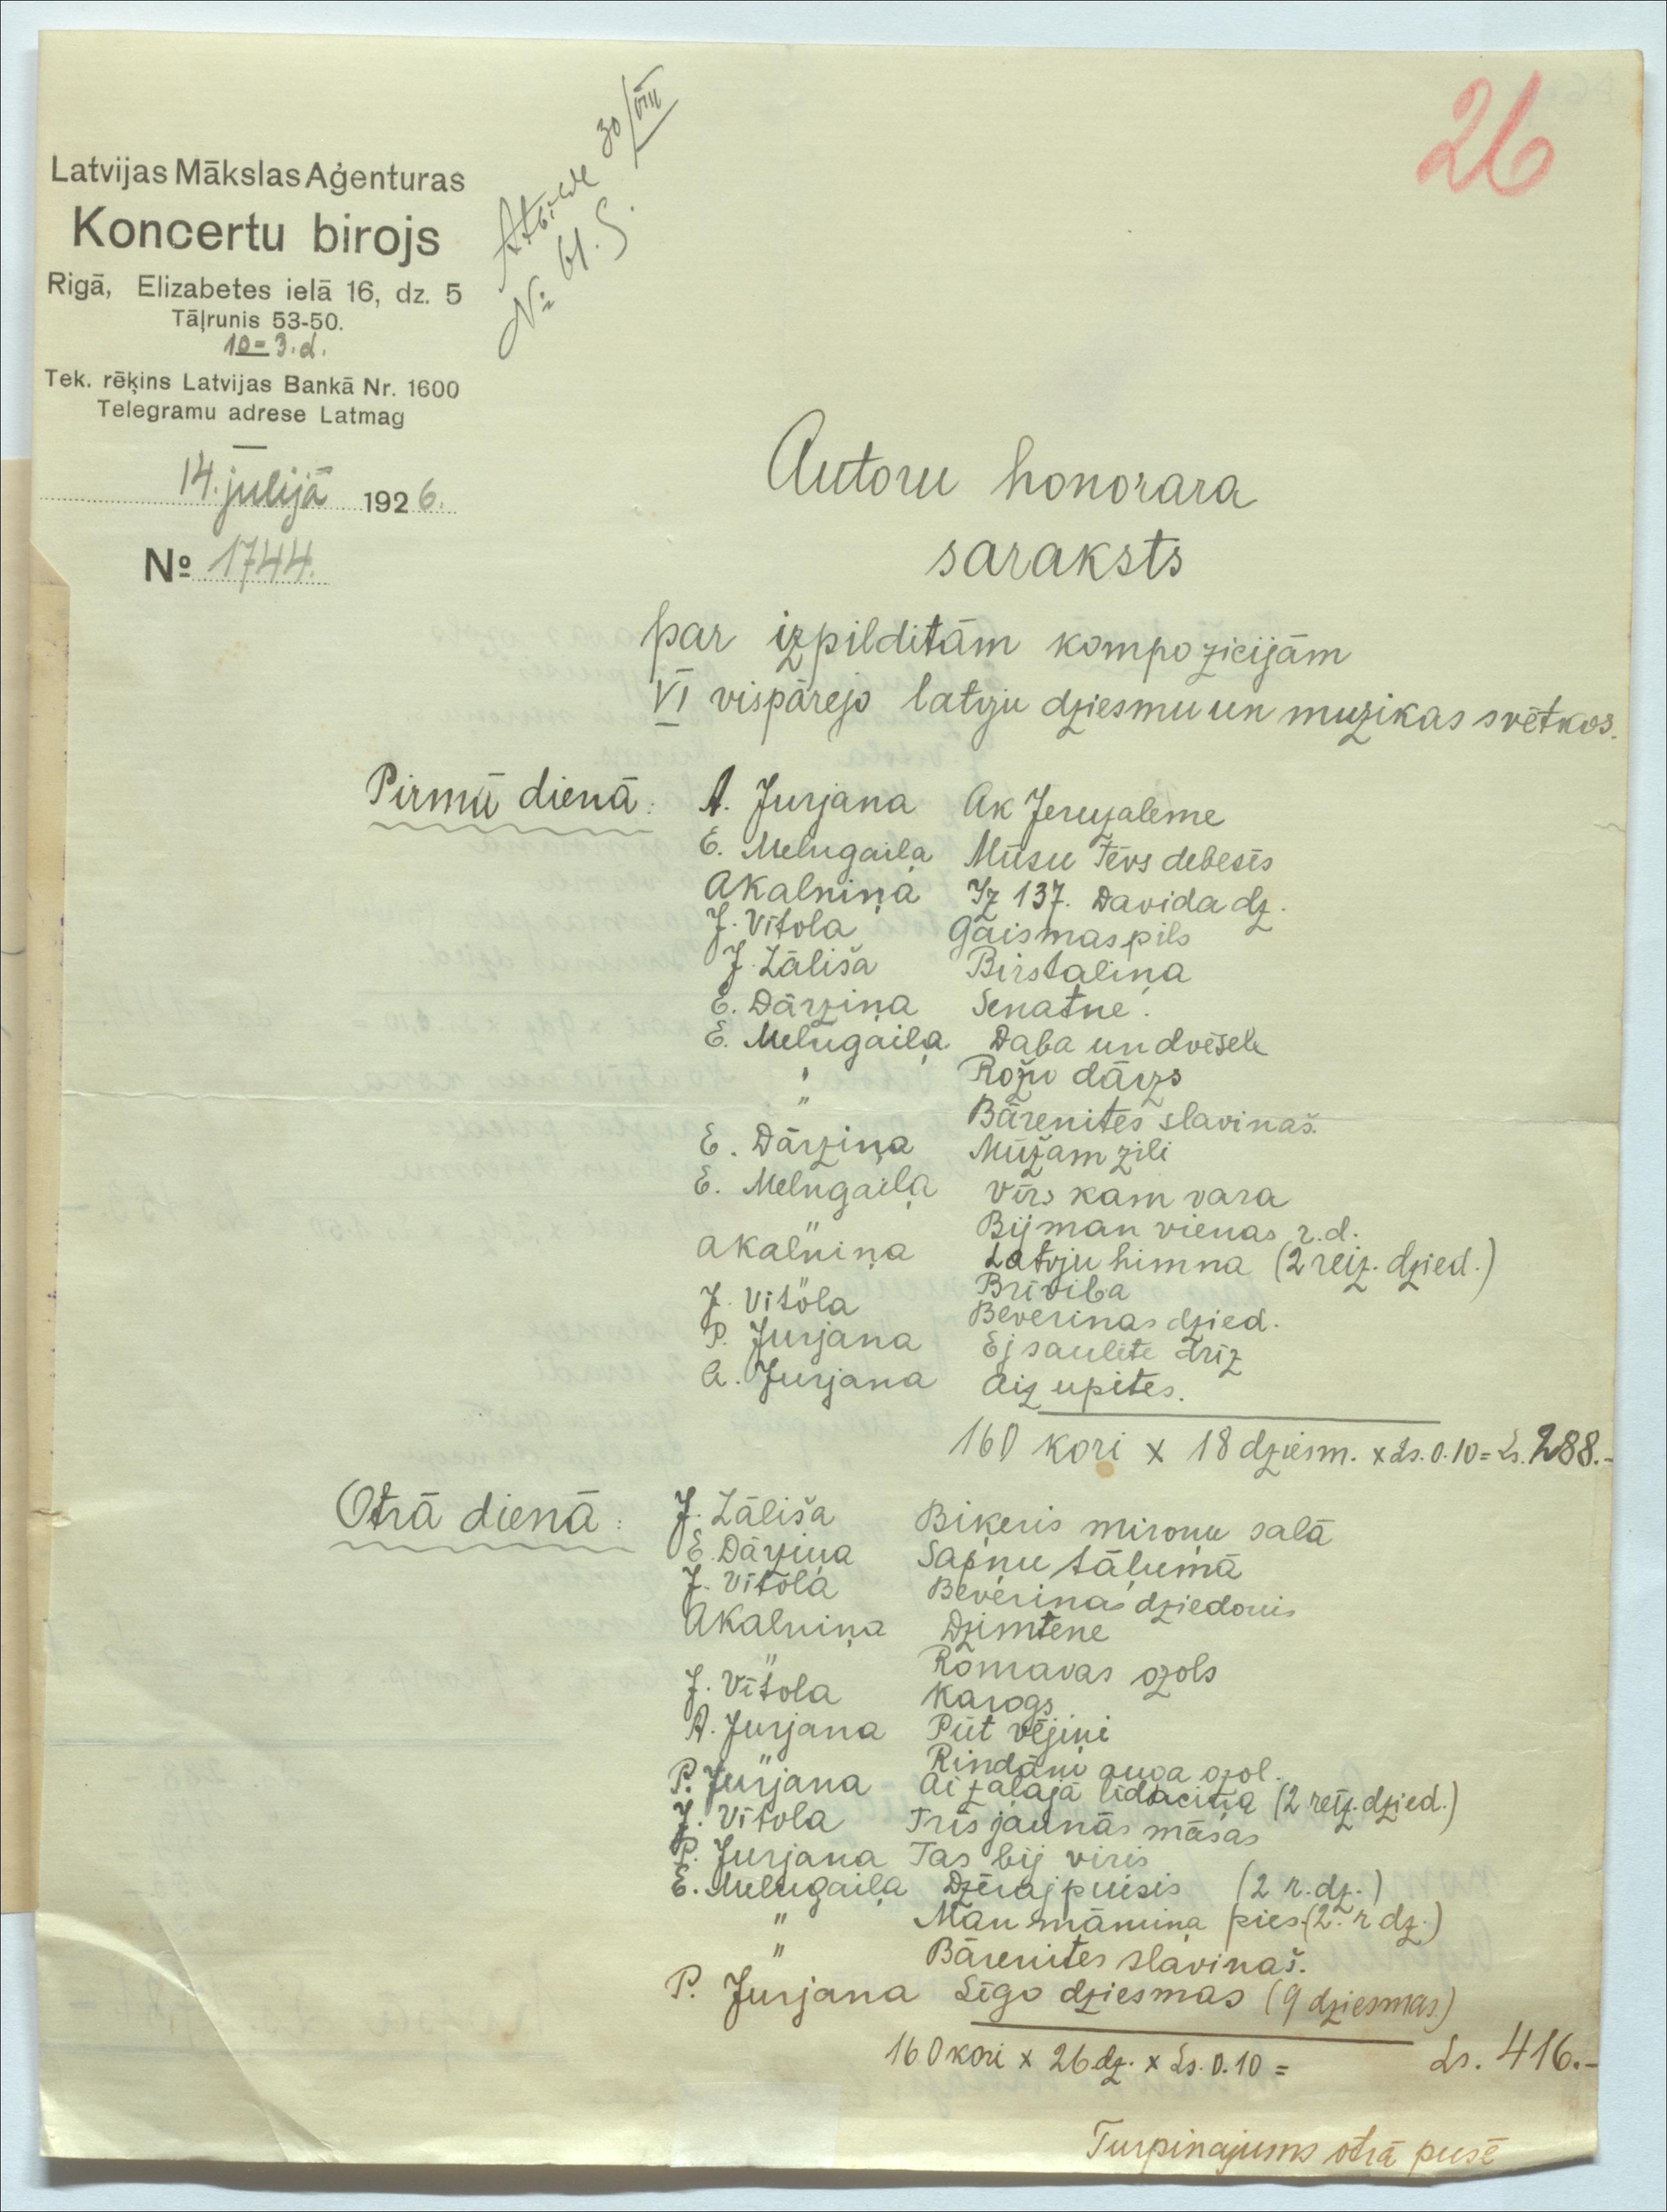 26
Latvijas Mākslas Aģenturas
Koncertu birojs
Rigā, Elizabetes ielā 16, dz. 5
Tāļrunis 53-50.
10=3.d.
Tek. rēķins Latvijas Bankā Nr. 1600
Telegramu adrese Latmag
14. julijā 1926.
№ 1744.
Atbilde 30/VIII
№ 61. S.
Autoru honorara
saraksts
par izpilditām kompozicijām
VI vispārejo latvju dziesmu un muzikas svētkos.
Pirmā dienā: A. Jurjana Ak Jeruzaleme
E. Melngaiļa Mūsu Tēvs debesīs
AKalniņa Iz 137. Davida dz.
J. Vītola Gaismas pils
J. Zāliša Birstaliņa
E. Dārziņa Senatne.
E. Melngaiļa Daba un dvēsele
" Rožu dārzs
" Bārenites slavinaš.
E. Dārziņa Mūžam zili
E. Melngaiļa Vīrs kam vara
" Bij man vienas r.d.
AKalniņa Latvju himna (2 reiz. dzied.)
" Brīviba
J. Vitola Beverinas dzied.
P. Jurjana Ej saulite drīz
A. Jurjana Aiz upites.
160 kori x 18 dziesm. x Ls. 0.10 = Ls. 288.-
Otrā dienā: J. Zāliša Biķeris miroņu salā
E. Dārziņa Sapņu tāļumā
J. Vītola Beverinas dziedonis
AKalniņa Dzimtene
" Romavas ozols
J. Vītola Karogs
A. Jurjana Pūt vējiņi
" Rindāmi auga ozol.
P. Jurjana Ai zaļajā līdaciņa (2 reiz. dzied.)
J. Vītola Trīs jaunās māsas
P. Jurjana Tas bij viris
E. Melngaiļa Dzēraj puisis (2 r. dz.)
" Man māmiņa pies. (2. r dz.)
" Bārenites slavinaš.
P. Jurjana Līgo dziesmas (9 dziesmas)
160 kori x 26 dz. x Ls. 0.10 = Ls. 416.-
Turpinajums otrā pusē